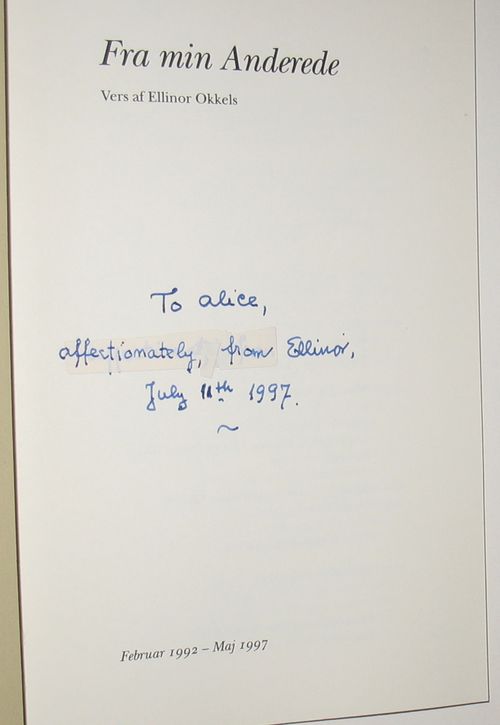 Fra min Anderede
Vers af Ellinor Okkels
To alice,
affectionately, from Ellinor,
July 11th 1997.
Februar 1992 – Maj 1997